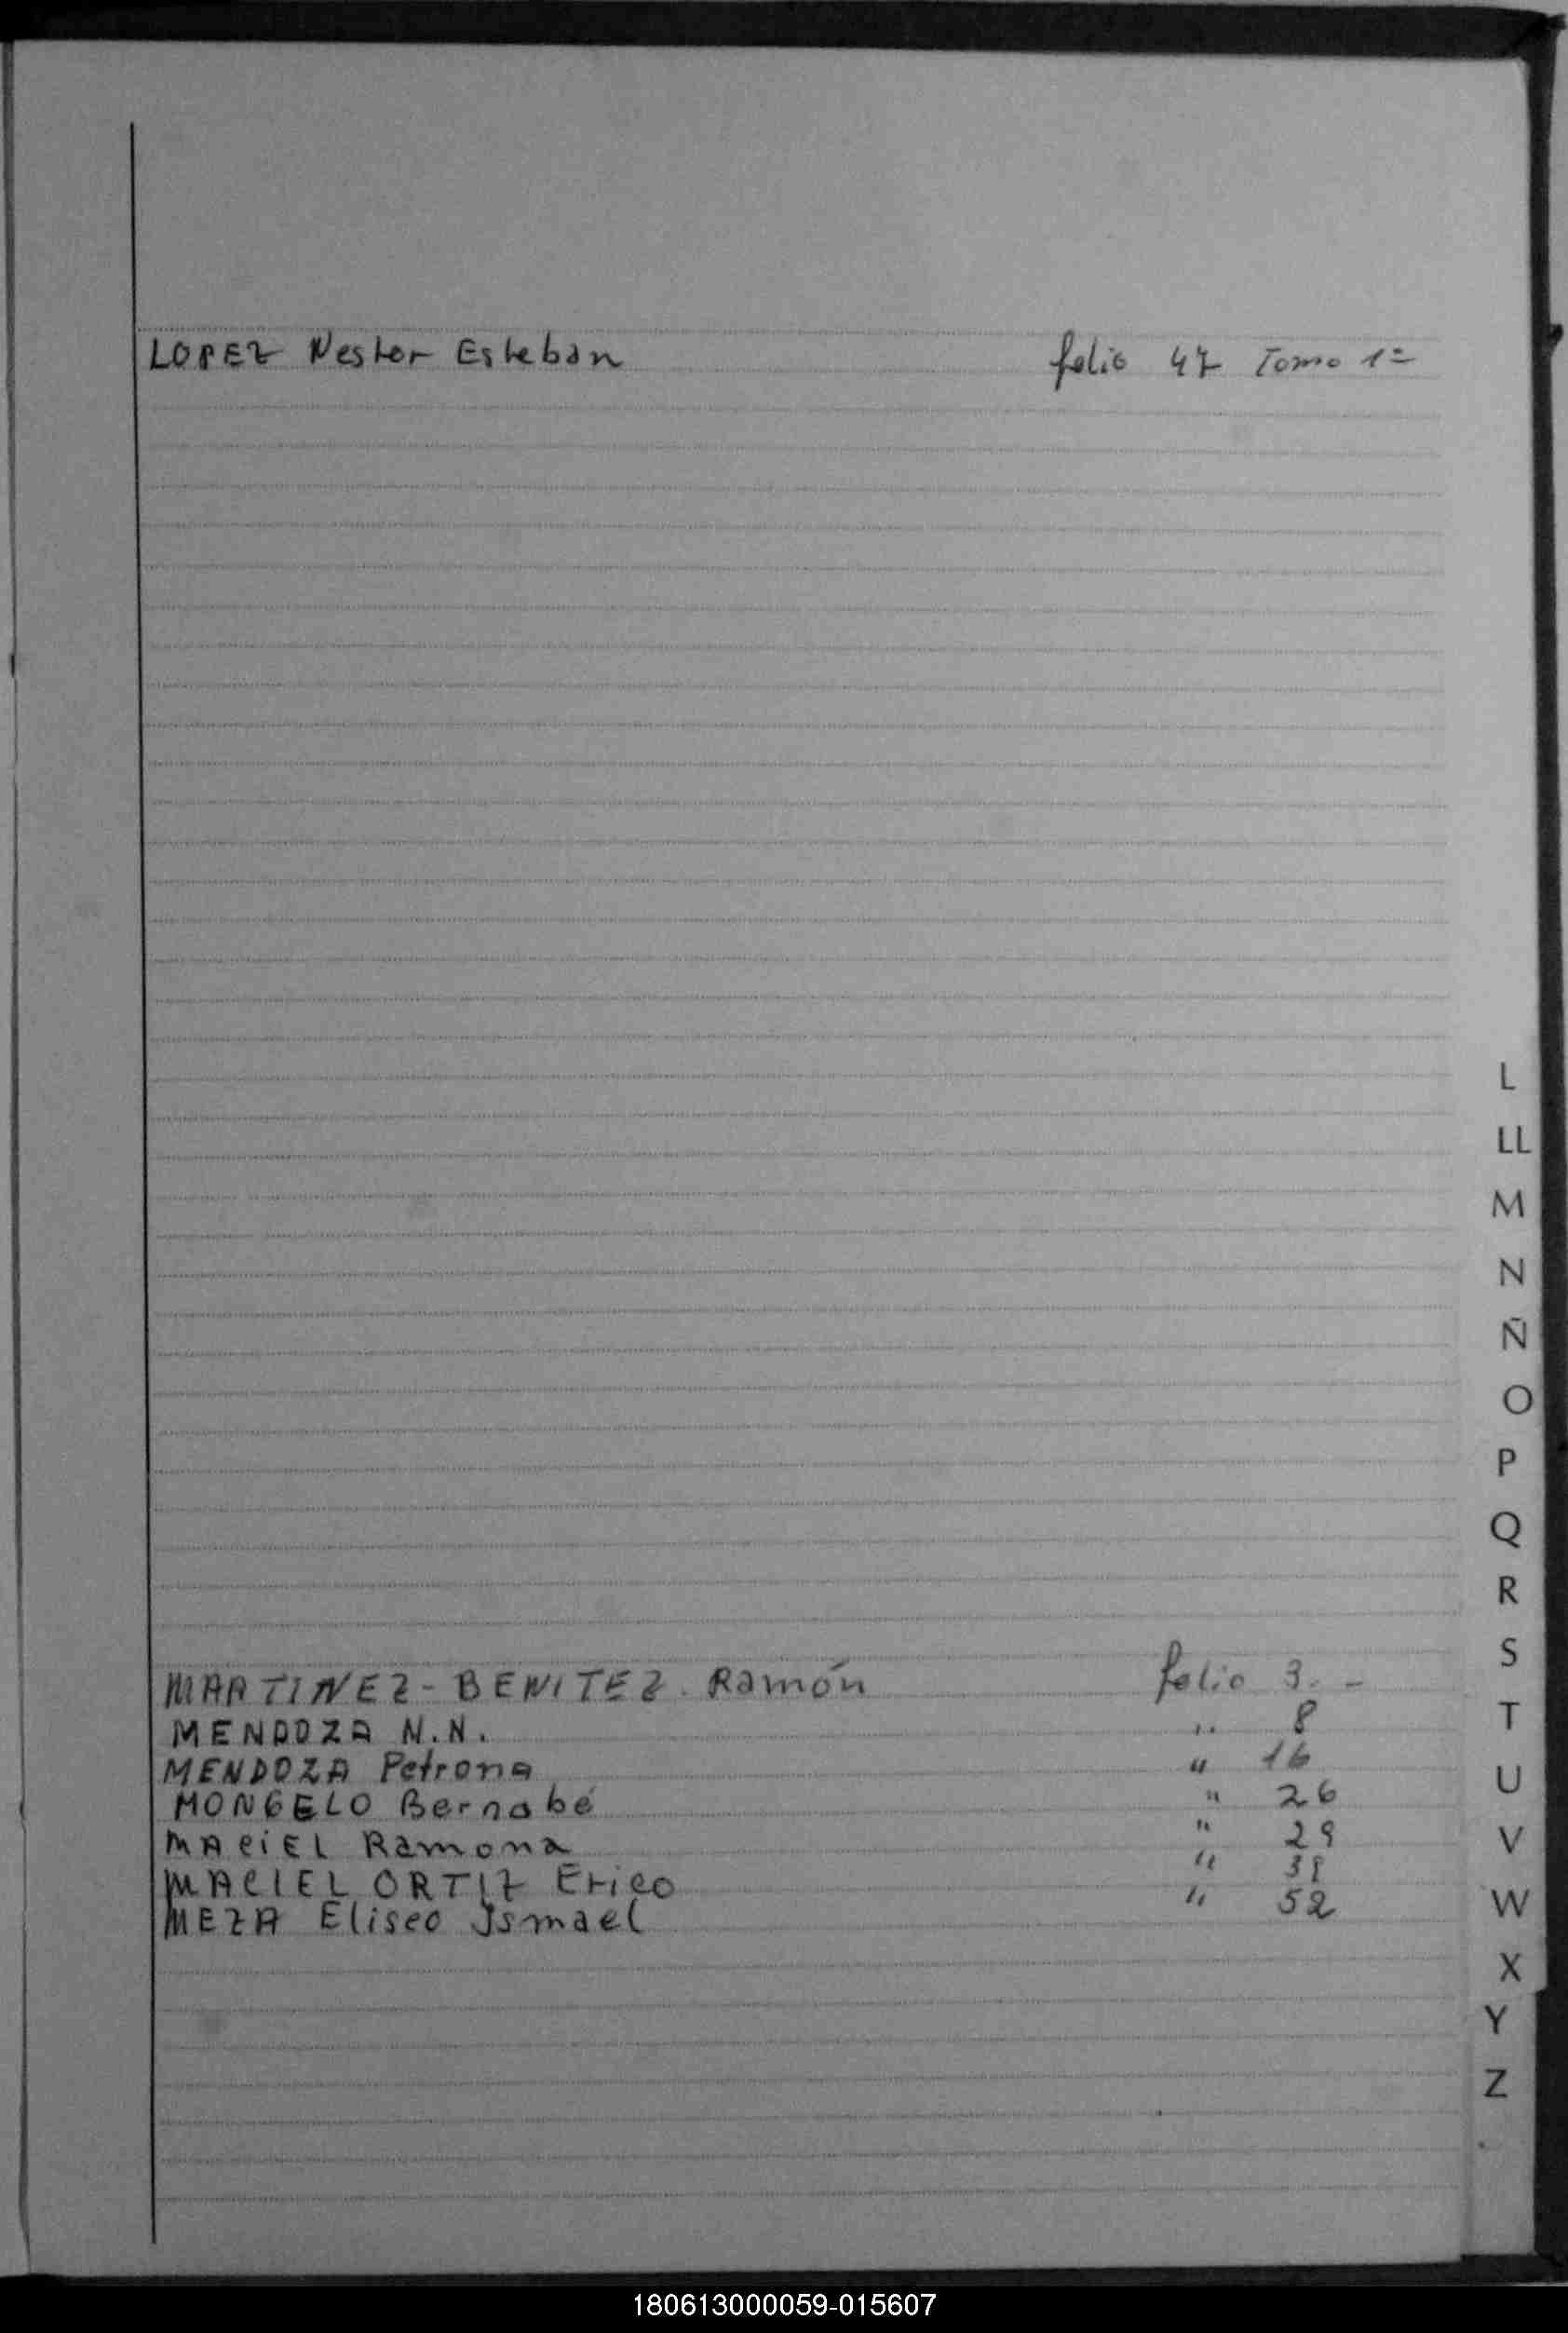 LOPEZ Nestor Esteban folio 47 Tomo 1=
L
LL
M
N
Ñ
O
P
Q
R
S
T
U
V
W
X
Y
Z
MARTINEZ-BENITEZ. Ramón folio 3. -
MENDOZA N.N. " 8
MENDOZA Petrona " 16
MONGELO Bernabé " 26
MACIEL Ramona " 29
MACIEL ORTIZ Erico "
MEZA Eliseo Ismael " 52
180613000059-015607